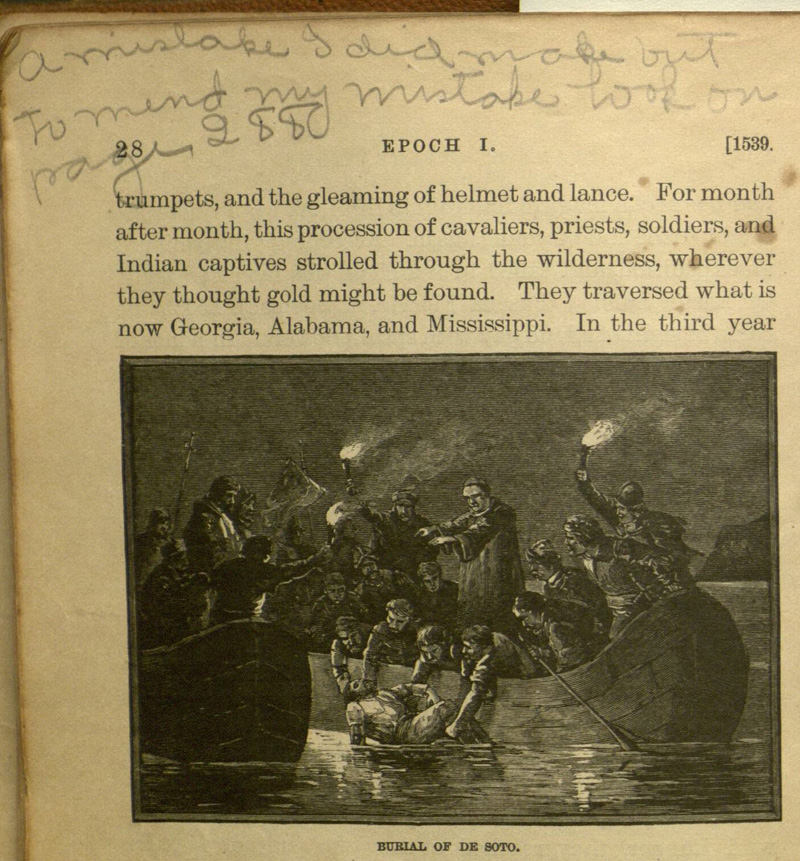 A mistake I did make but
to mend my mistake look on
page 2880
28 EPOCH I. [1539.
trumpets, and the gleaming of helmet and lance. For month
after month, this procession of cavaliers, priests, soldiers, and
Indian captives strolled through the wilderness, wherever
they thought gold might be found. They traversed what is
now Georgia, Alabama, and Mississippi. In the third year
BURIAL OF DE SOTO.